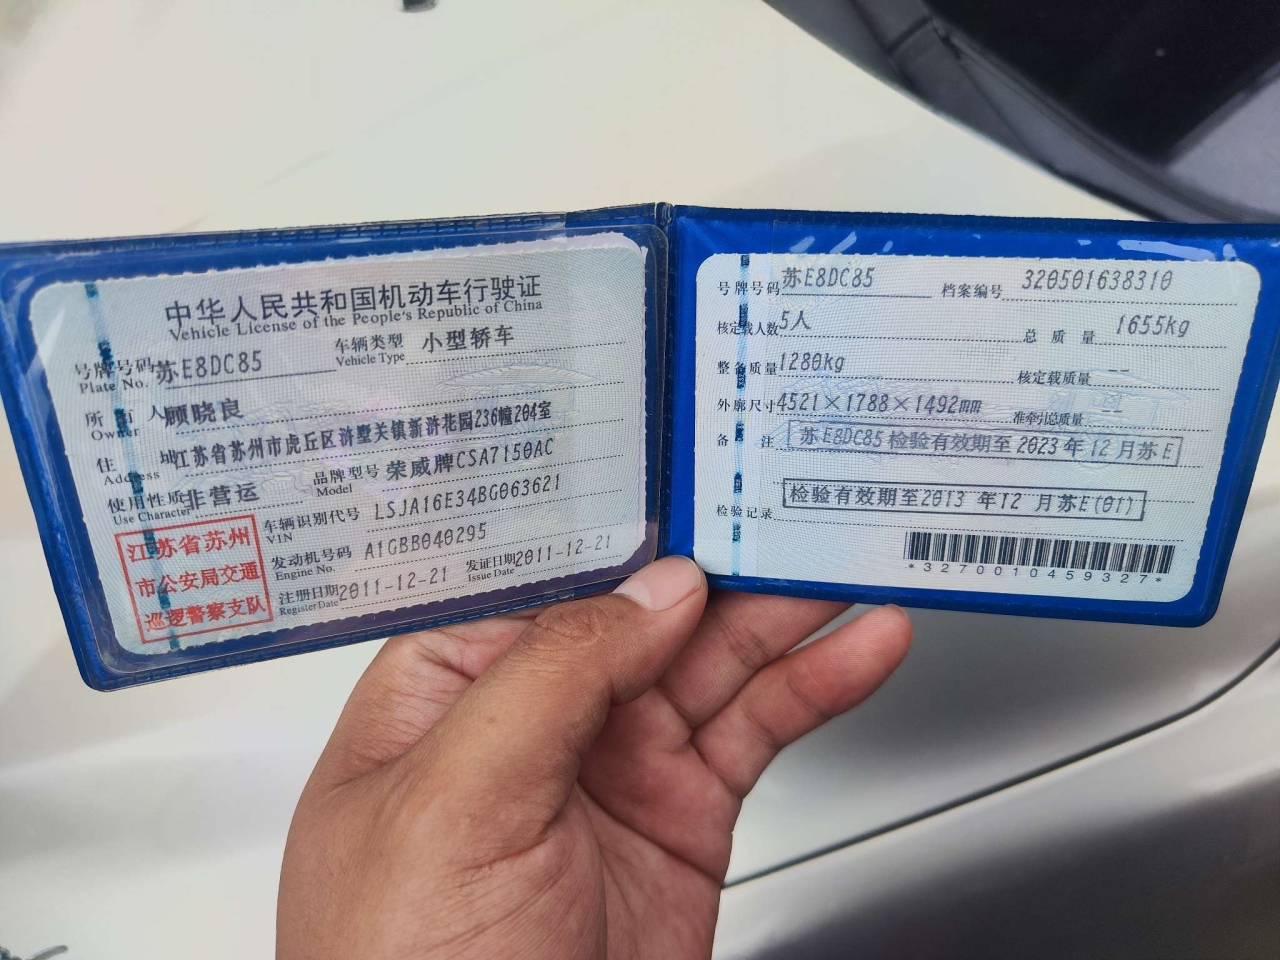 中华人民共和国机动车行驶证
Vehicle License of the People's Republic of China
号牌号码 苏E8DC85 车辆类型 小型轿车
Plate No. Vehicle Type
所有人 顾晓良
Owner
住址 江苏省苏州市虎丘区浒墅关镇新浒花园236幢204室
Address
使用性质 非营运 品牌型号 荣威牌CSA7150AC
Use Character Model
车辆识别代号 LSJA16E34BG063621
VIN
发动机号码 A1GBB040295
Engine No.
注册日期 2011-12-21 发证日期 2011-12-21
Register Date Issue Date
江苏省苏州
市公安局交通
巡逻警察支队
号牌号码 苏E8DC85 档案编号 320501638310
核定载人数 5人 总质量 1655kg
整备质量 1280kg 核定载质量 --
外廓尺寸 4521×1788×1492mm 准牵引总质量 --
备注 苏E8DC85 检验有效期至 2023 年 12 月苏E
检验记录 检验有效期至2013 年12 月苏E(01)
*3270010459327*